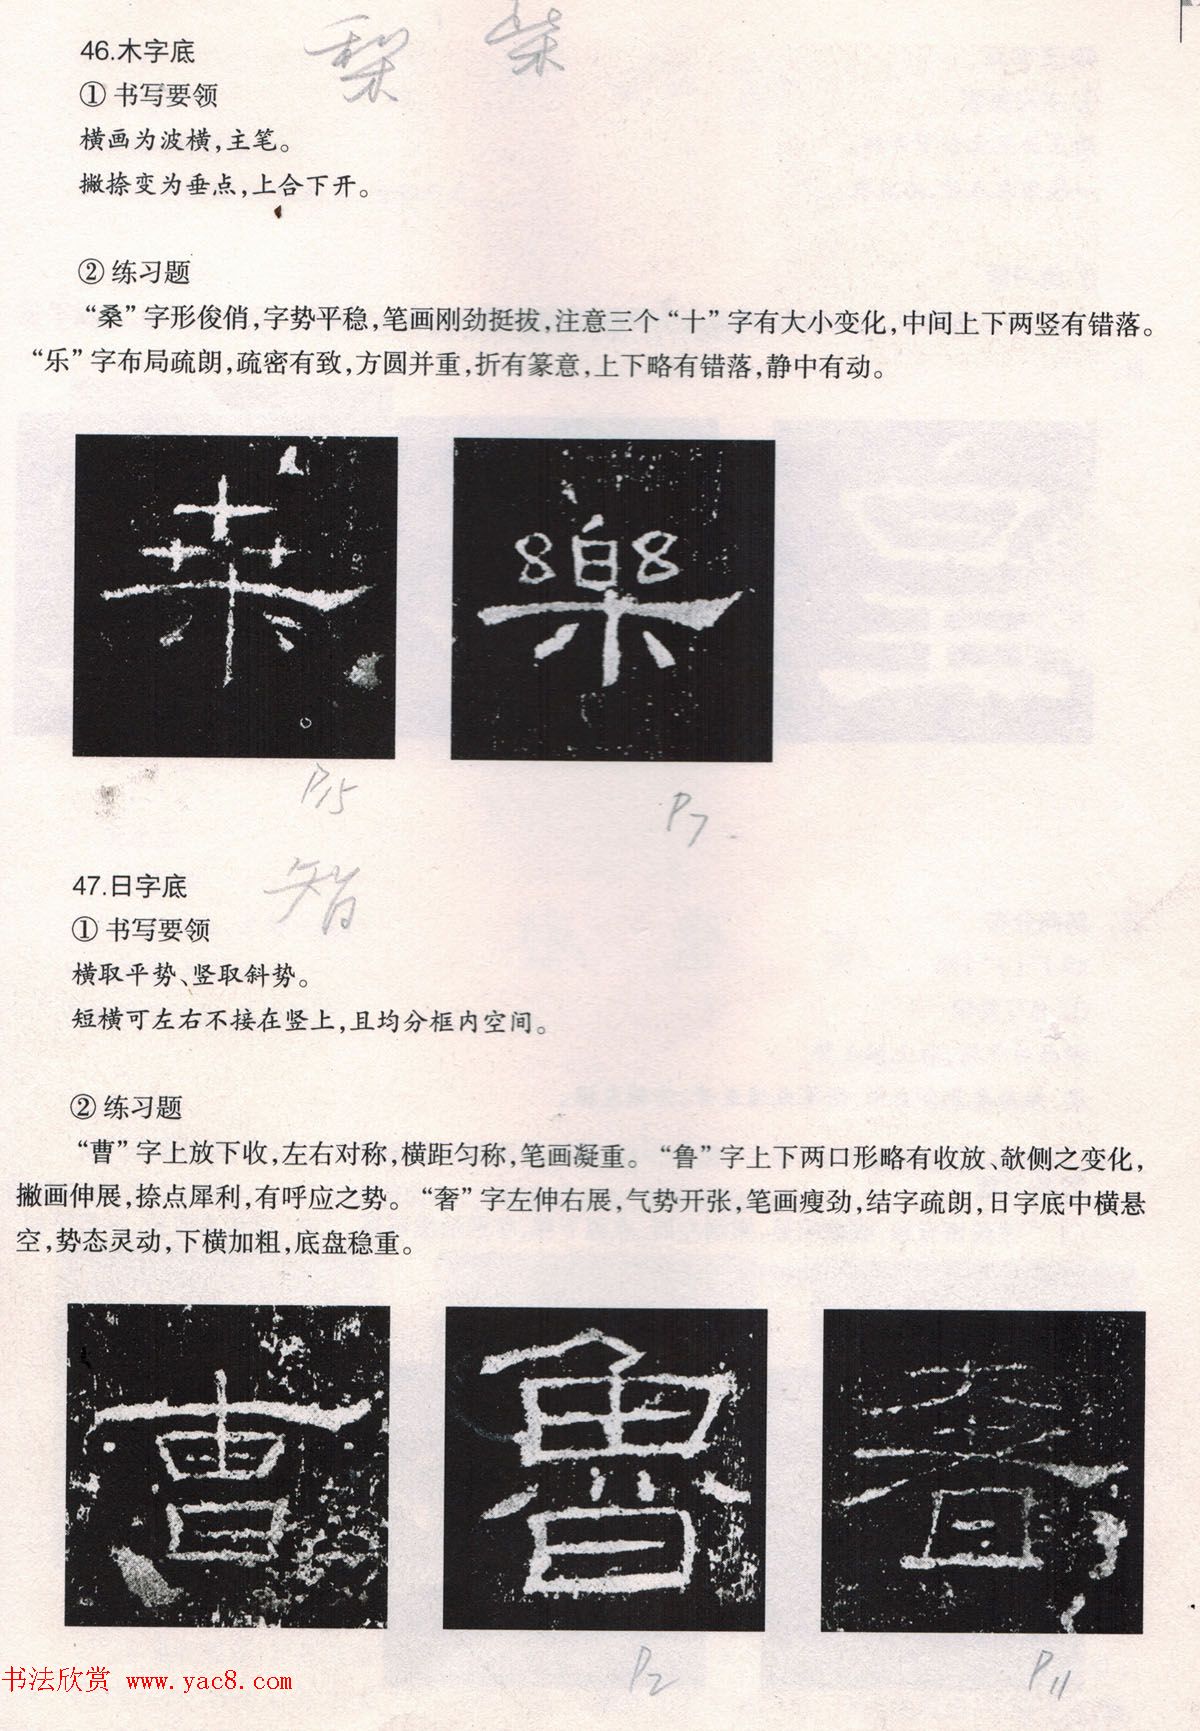 46.木字底 梨 柴
① 书写要领
横画为波横,主笔。
撇捺变为垂点,上合下开。
② 练习题
“桑”字形俊俏,字势平稳,笔画刚劲挺拔,注意三个“十”字有大小变化,中间上下两竖有错落。
“乐”字布局疏朗,疏密有致,方圆并重,折有篆意,上下略有错落,静中有动。
桑 樂
P15 P7
47.日字底 智
① 书写要领
横取平势、竖取斜势。
短横可左右不接在竖上,且均分框内空间。
② 练习题
“曹”字上放下收,左右对称,横距匀称,笔画凝重。“鲁”字上下两口形略有收放、欹侧之变化,
撇画伸展,捺点犀利,有呼应之势。“奢”字左伸右展,气势开张,笔画瘦劲,结字疏朗,日字底中横悬
空,势态灵动,下横加粗,底盘稳重。
曹 魯 奢
P2 P11
书法欣赏 www.yac8.com